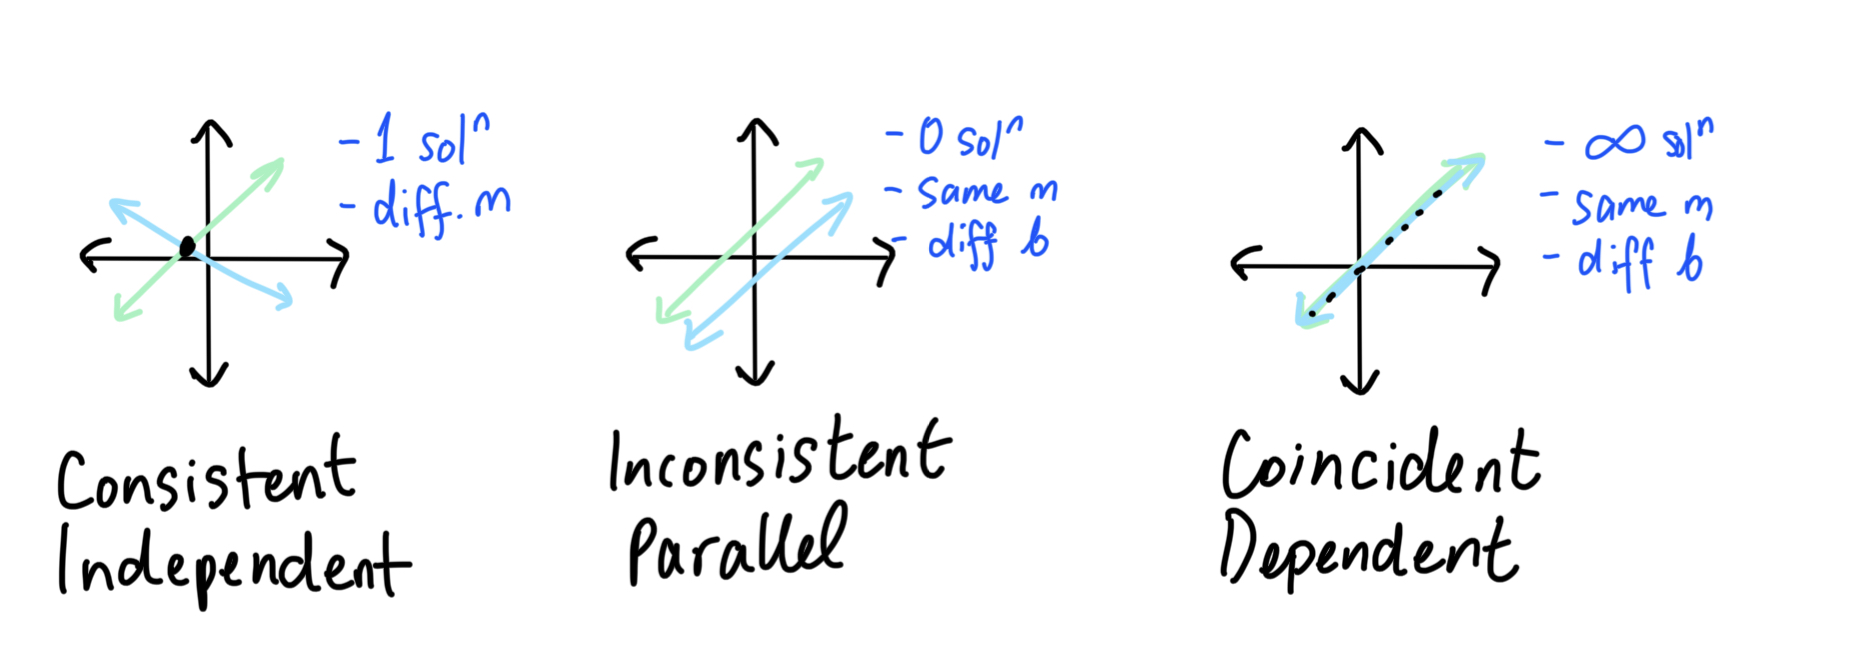 - 1 solⁿ
- diff. m
Consistent
Independent
- 0 solⁿ
- same m
- diff b
Inconsistent
Parallel
- ∞ solⁿ
- same m
- diff b
Coincident
Dependent